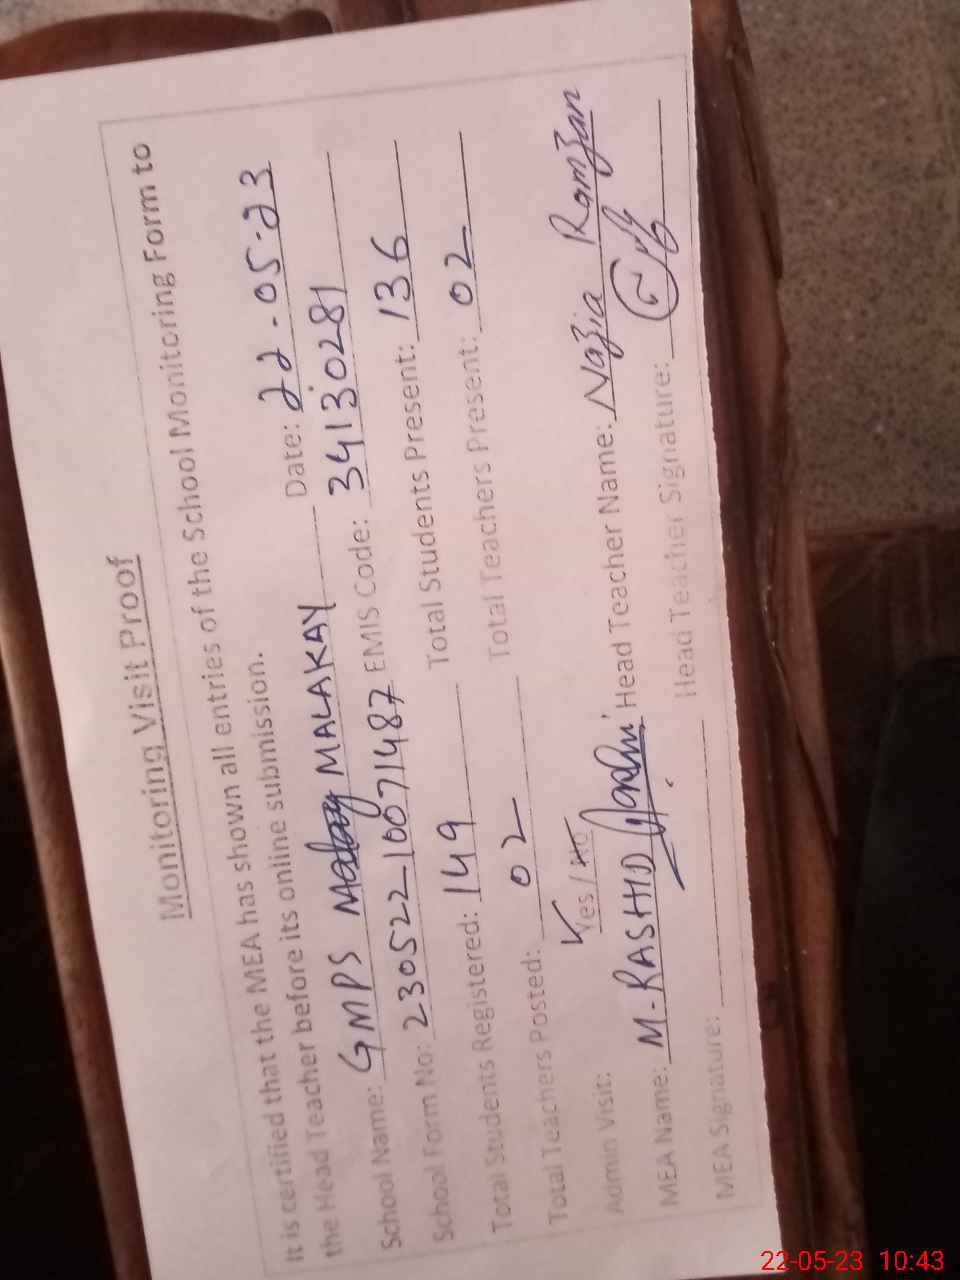 Monitoring Visit Proof
It is certified that the MEA has shown all entries of the School Monitoring Form to
the Head Teacher before its online submission.
School Name: GMPS MALAKAY Date: 22-05-23
School Form No: 23052210071487 EMIS Code: 34130281
Total Students Registered: 149 Total Students Present: 136
Total Teachers Posted: 02 Total Teachers Present: 02
Admin Visit: Yes / No
MEA Name: M-RASHID Head Teacher Name: Nazia Ramzan
MEA Signature: Head Teacher Signature:
22-05-23 10:43